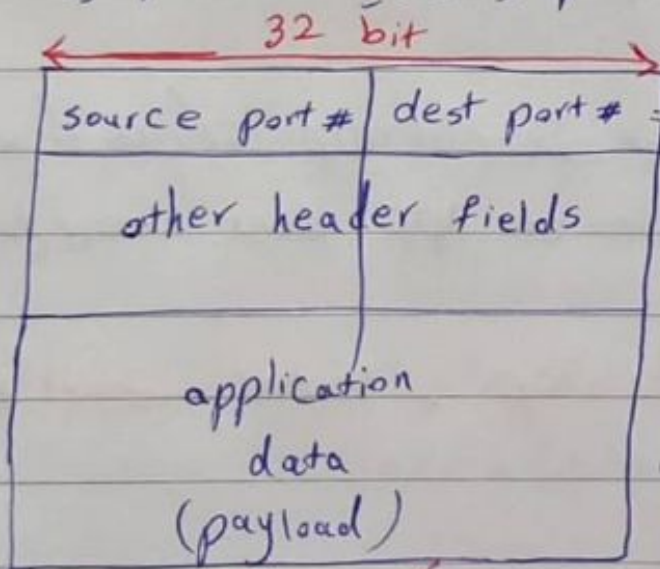 32 bit
source port # dest port #
other header fields
application
data
(payload)